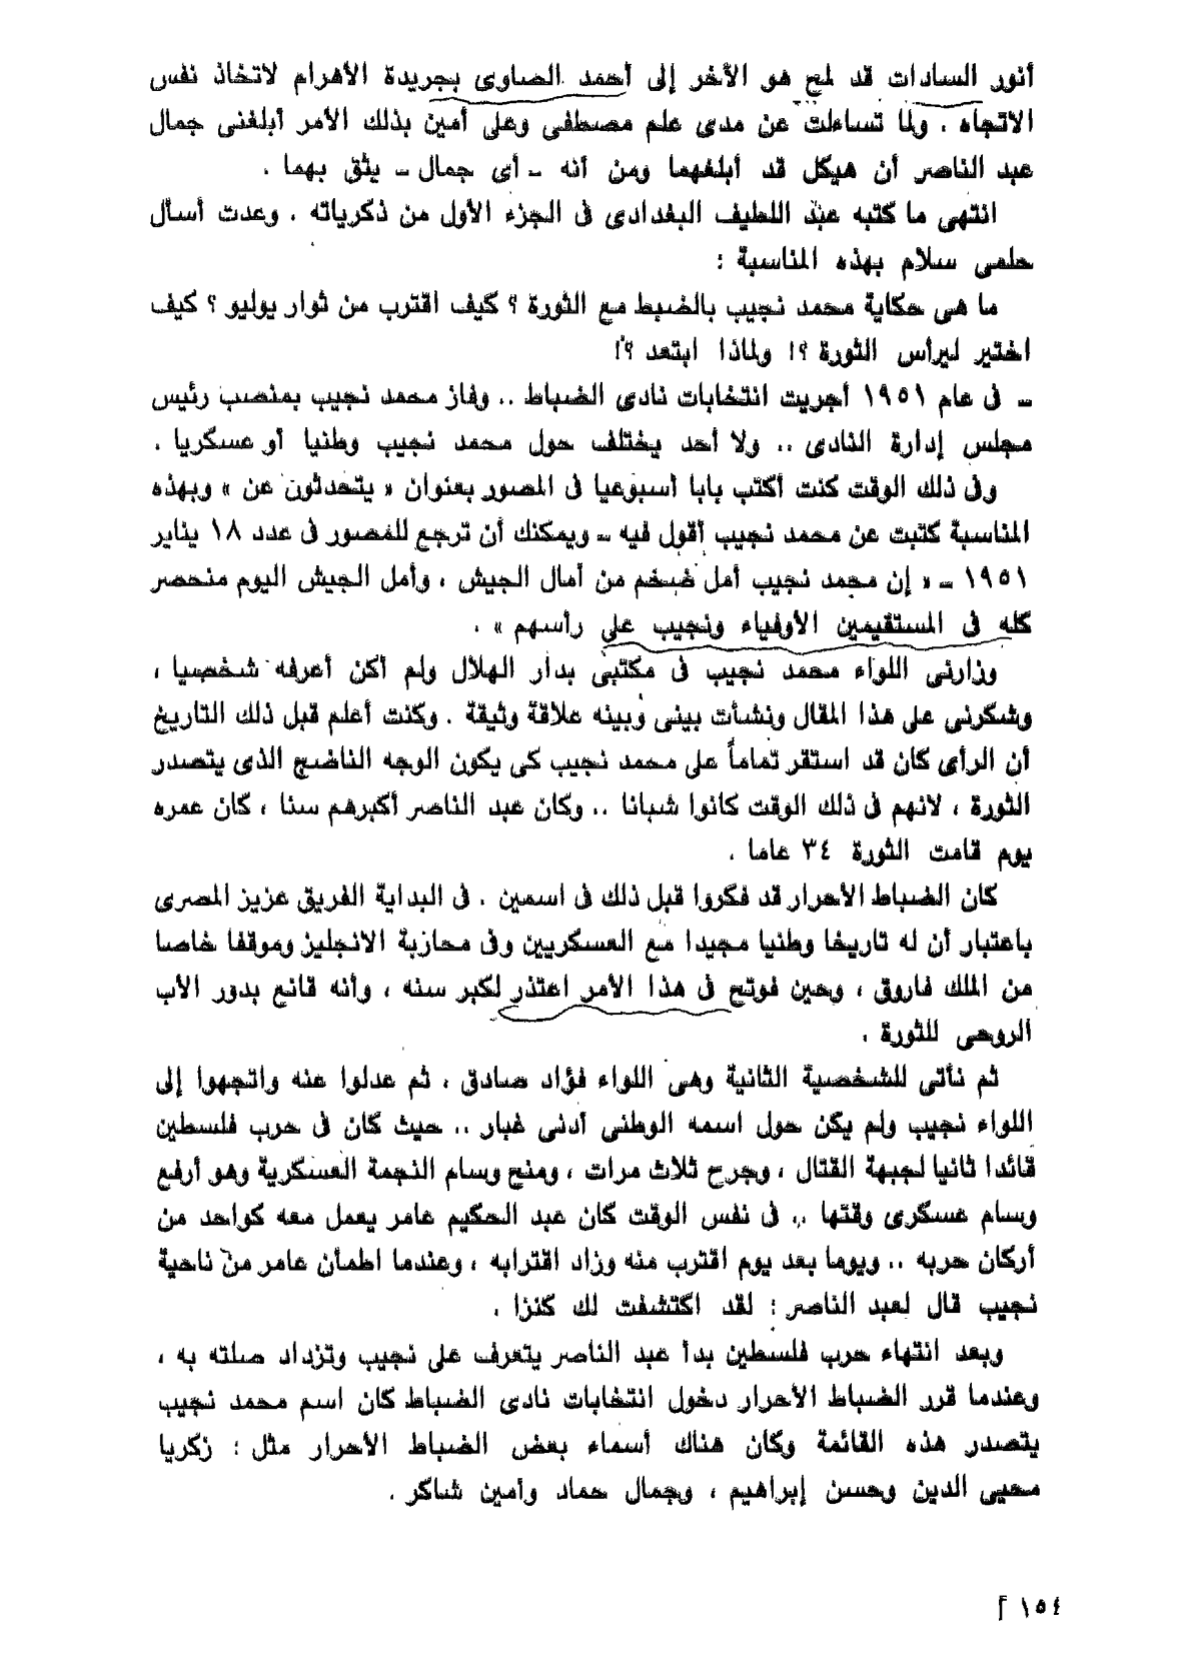 أنور السادات قد لمح هو الآخر إلى أحمد الصاوى بجريدة الأهرام لاتخاذ نفس
الاتجاه . ولما تساءلت عن مدى علم مصطفى وعلى أمين بذلك الأمر أبلغنى جمال
عبد الناصر أن هيكل قد أبلغهما ومن أنه - أى جمال - يثق بهما .
انتهى ما كتبه عبد اللطيف البغدادى فى الجزء الأول من ذكرياته . وعدت أسأل
حلمى سلام بهذه المناسبة :
ما هى حكاية محمد نجيب بالضبط مع الثورة ؟ كيف اقترب من ثوار يوليو ؟ كيف
اختير ليرأس الثورة ؟! ولماذا ابتعد ؟!
- فى عام ١٩٥١ أجريت انتخابات نادى الضباط .. وفاز محمد نجيب بمنصب رئيس
مجلس إدارة النادى .. ولا أحد يختلف حول محمد نجيب وطنيا أو عسكريا .
وفى ذلك الوقت كنت أكتب بابا أسبوعيا فى المصور بعنوان « يتحدثون عن » وبهذه
المناسبة كتبت عن محمد نجيب أقول فيه - ويمكنك أن ترجع للمصور فى عدد ١٨ يناير
١٩٥١ - « إن محمد نجيب أمل ضخم من آمال الجيش ، وأمل الجيش اليوم منحصر
كله فى المستقيمين الأوفياء ونجيب على رأسهم » .
وزارنى اللواء محمد نجيب فى مكتبى بدار الهلال ولم أكن أعرفه شخصيا ،
وشكرنى على هذا المقال ونشأت بينى وبينه علاقة وثيقة . وكنت أعلم قبل ذلك التاريخ
أن الرأى كان قد استقر تماماً على محمد نجيب كى يكون الوجه الناضج الذى يتصدر
الثورة ، لانهم فى ذلك الوقت كانوا شبانا .. وكان عبد الناصر أكبرهم سنا ، كان عمره
يوم قامت الثورة ٣٤ عاما .
كان الضباط الأحرار قد فكروا قبل ذلك فى اسمين . فى البداية الفريق عزيز المصرى
باعتبار أن له تاريخا وطنيا مجيدا مع العسكريين وفى محازبة الانجليز وموقفا خاصا
من الملك فاروق ، وحين فوتح فى هذا الأمر اعتذر لكبر سنه ، وأنه قانع بدور الأب
الروحى للثورة .
ثم نأتى للشخصية الثانية وهى اللواء فؤاد صادق ، ثم عدلوا عنه واتجهوا إلى
اللواء نجيب ولم يكن حول اسمه الوطنى أدنى غبار .. حيث كان فى حرب فلسطين
قائدا ثانيا لجبهة القتال ، وجرح ثلاث مرات ، ومنح وسام النجمة العسكرية وهو أرفع
وسام عسكرى وقتها .. فى نفس الوقت كان عبد الحكيم عامر يعمل معه كواحد من
أركان حربه .. ويوما بعد يوم اقترب منه وزاد اقترابه ، وعندما اطمأن عامر من ناحية
نجيب قال لعبد الناصر : لقد اكتشفت لك كنزا .
وبعد انتهاء حرب فلسطين بدأ عبد الناصر يتعرف على نجيب وتزداد صلته به ،
وعندما قرر الضباط الأحرار دخول انتخابات نادى الضباط كان اسم محمد نجيب
يتصدر هذه القائمة وكان هناك أسماء بعض الضباط الأحرار مثل : زكريا
محيى الدين وحسن إبراهيم ، وجمال حماد وأمين شاكر .
١٥٤ أ